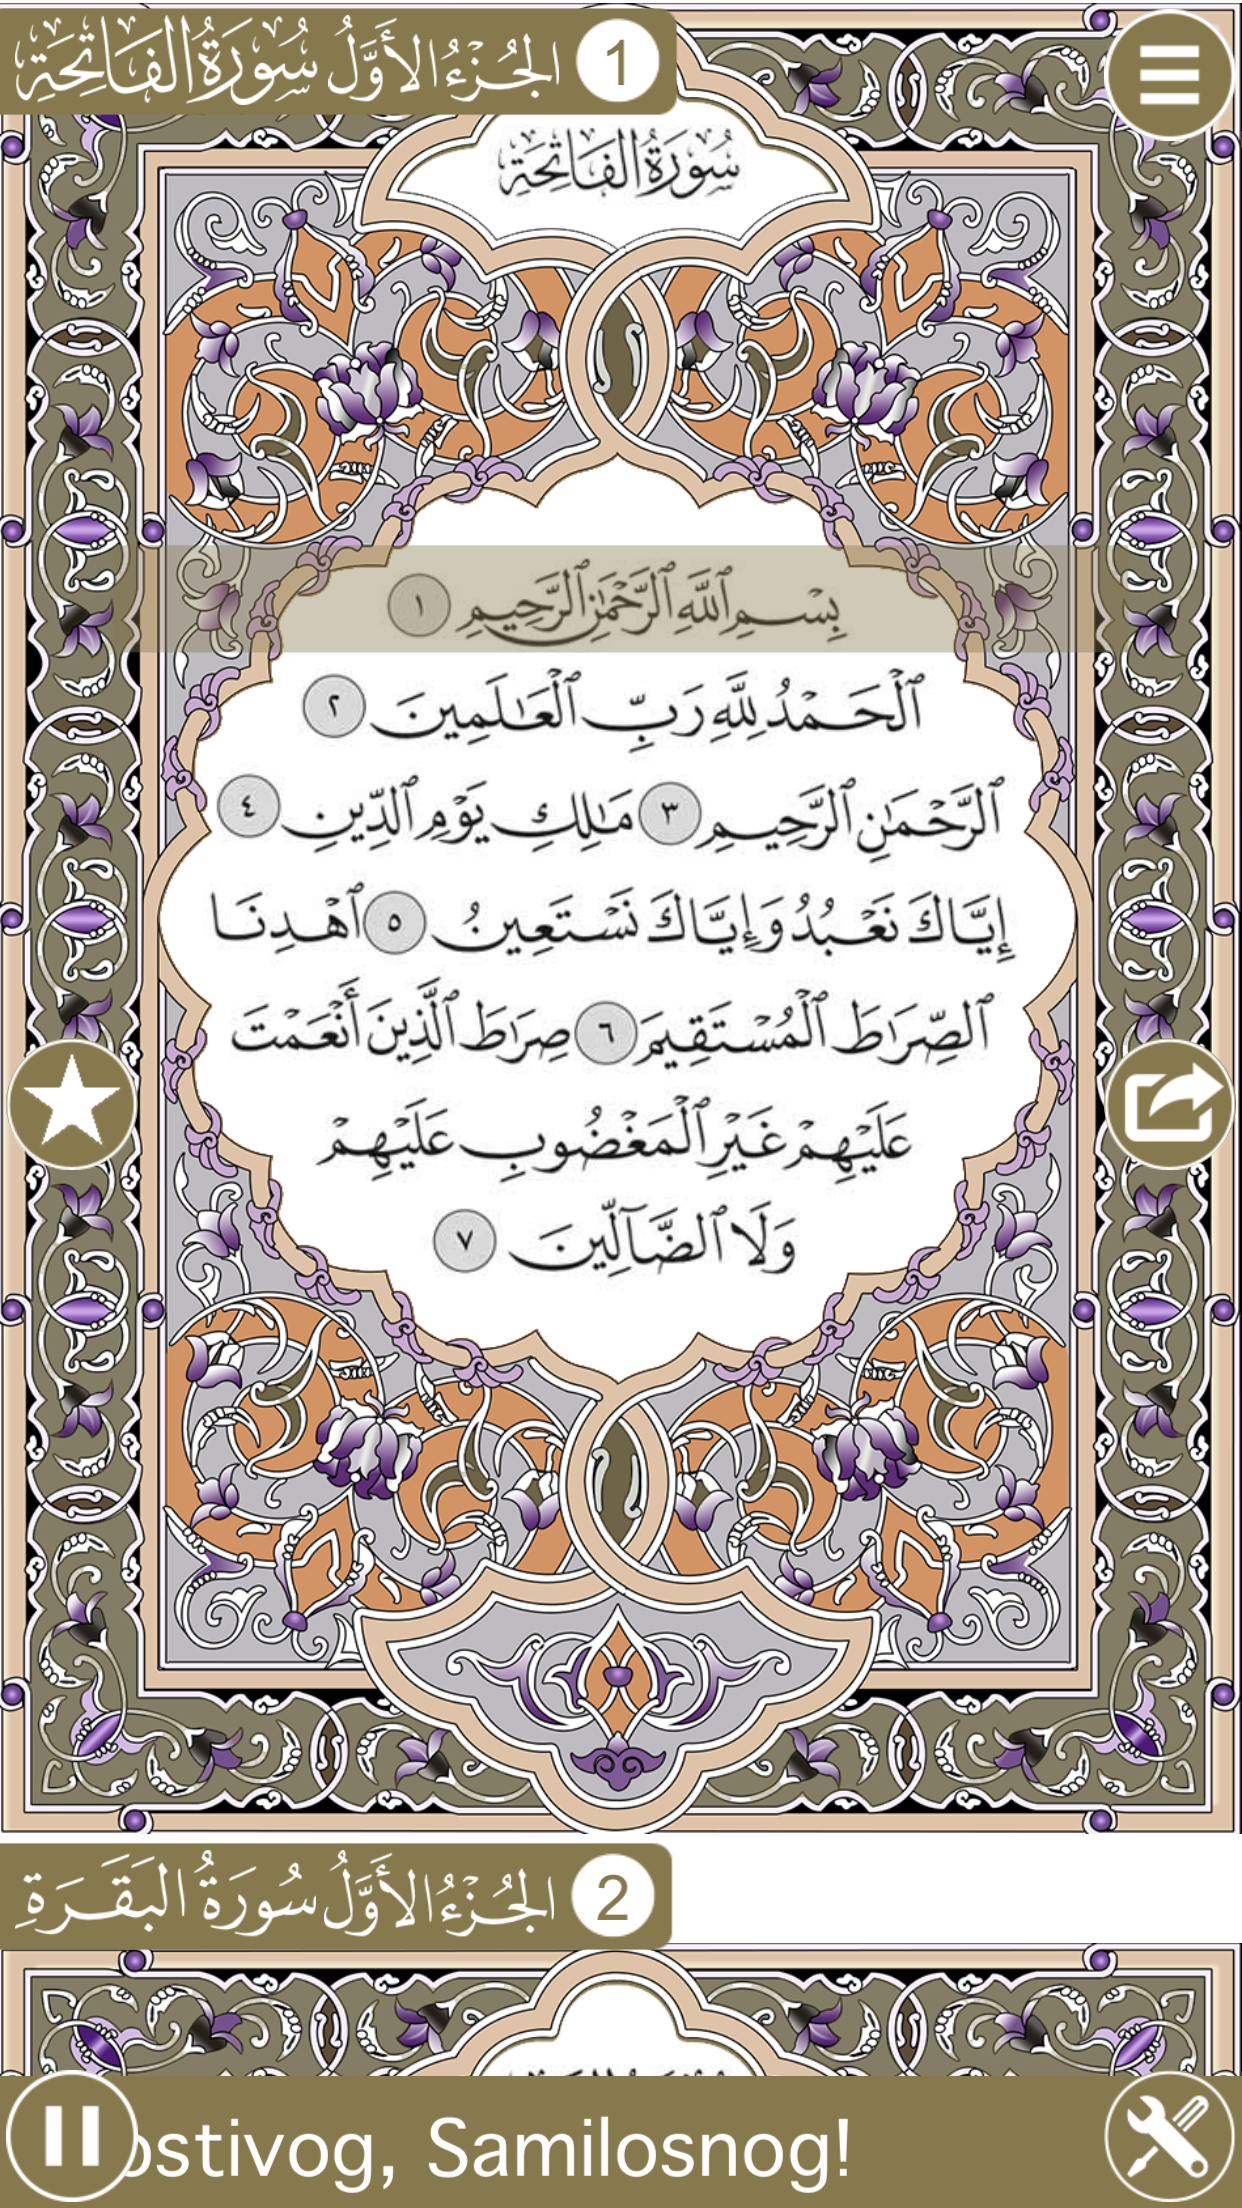 الجُزْءُ الأَوَّلُ سُورَةُ الفَاتِحَةِ 1
سُورَةُ الفَاتِحَةِ
بِسْمِ ٱللَّهِ ٱلرَّحْمَٰنِ ٱلرَّحِيمِ ١
ٱلْحَمْدُ لِلَّهِ رَبِّ ٱلْعَٰلَمِينَ ٢
ٱلرَّحْمَٰنِ ٱلرَّحِيمِ ٣ مَٰلِكِ يَوْمِ ٱلدِّينِ ٤
إِيَّاكَ نَعْبُدُ وَإِيَّاكَ نَسْتَعِينُ ٥ ٱهْدِنَا
ٱلصِّرَٰطَ ٱلْمُسْتَقِيمَ ٦ صِرَٰطَ ٱلَّذِينَ أَنْعَمْتَ
عَلَيْهِمْ غَيْرِ ٱلْمَغْضُوبِ عَلَيْهِمْ
وَلَا ٱلضَّآلِّينَ ٧
الجُزْءُ الأَوَّلُ سُورَةُ البَقَرَةِ 2
ostivog, Samilosnog!